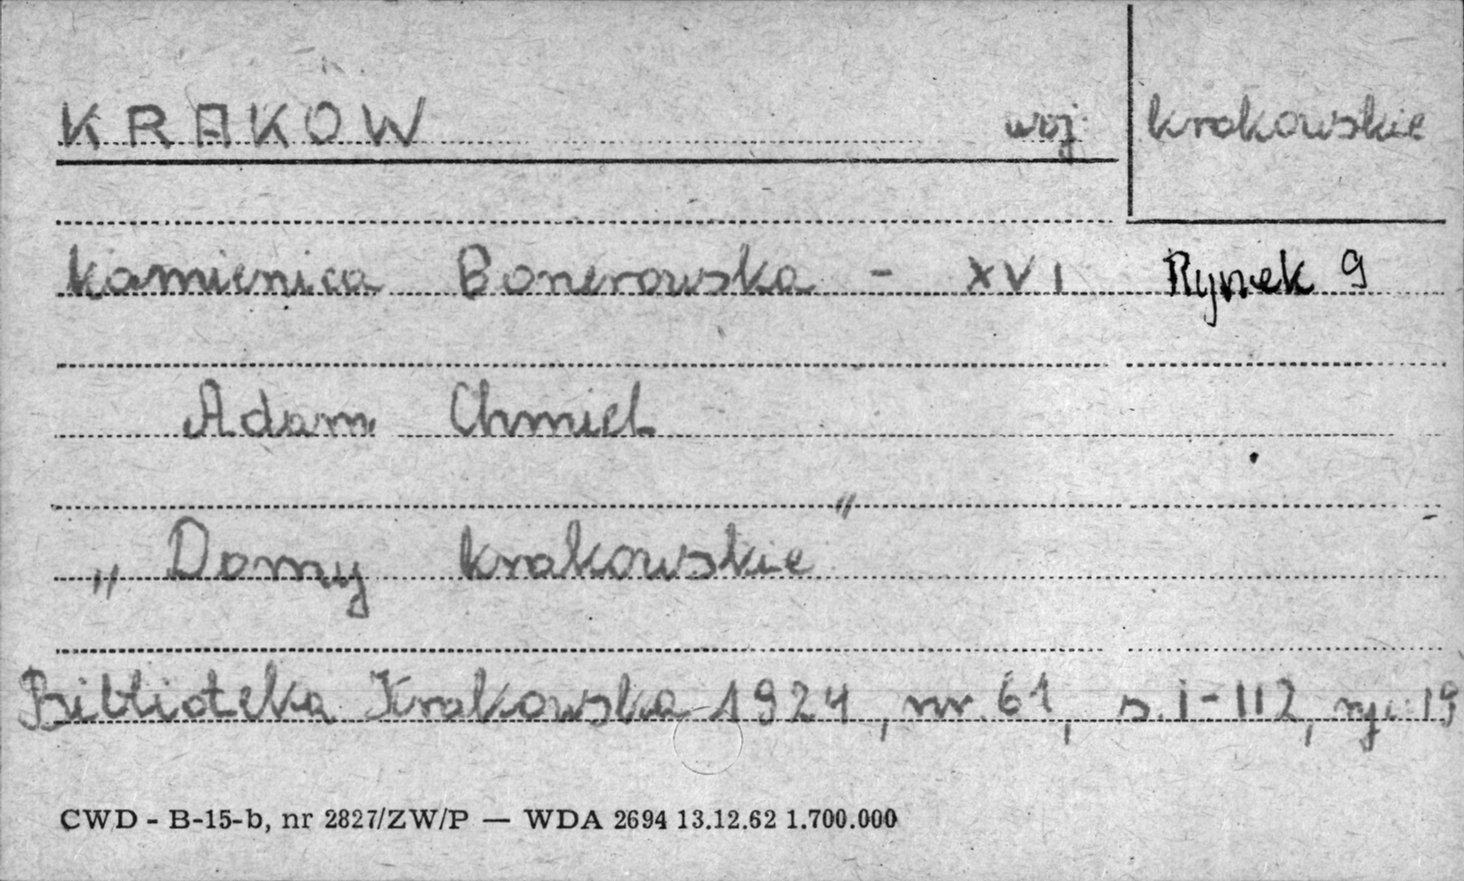 KRAKOW woj. krakowskie
kamienica Bonerowska - XVI Rynek 9
Adam Chmiel
„Domy krakowskie"
Biblioteka Krakowska 1924, nr. 61, s. 1-112, ryc. 19
CWD - B-15-b, nr 2827/ZW/P — WDA 2694 13.12.62 1.700.000